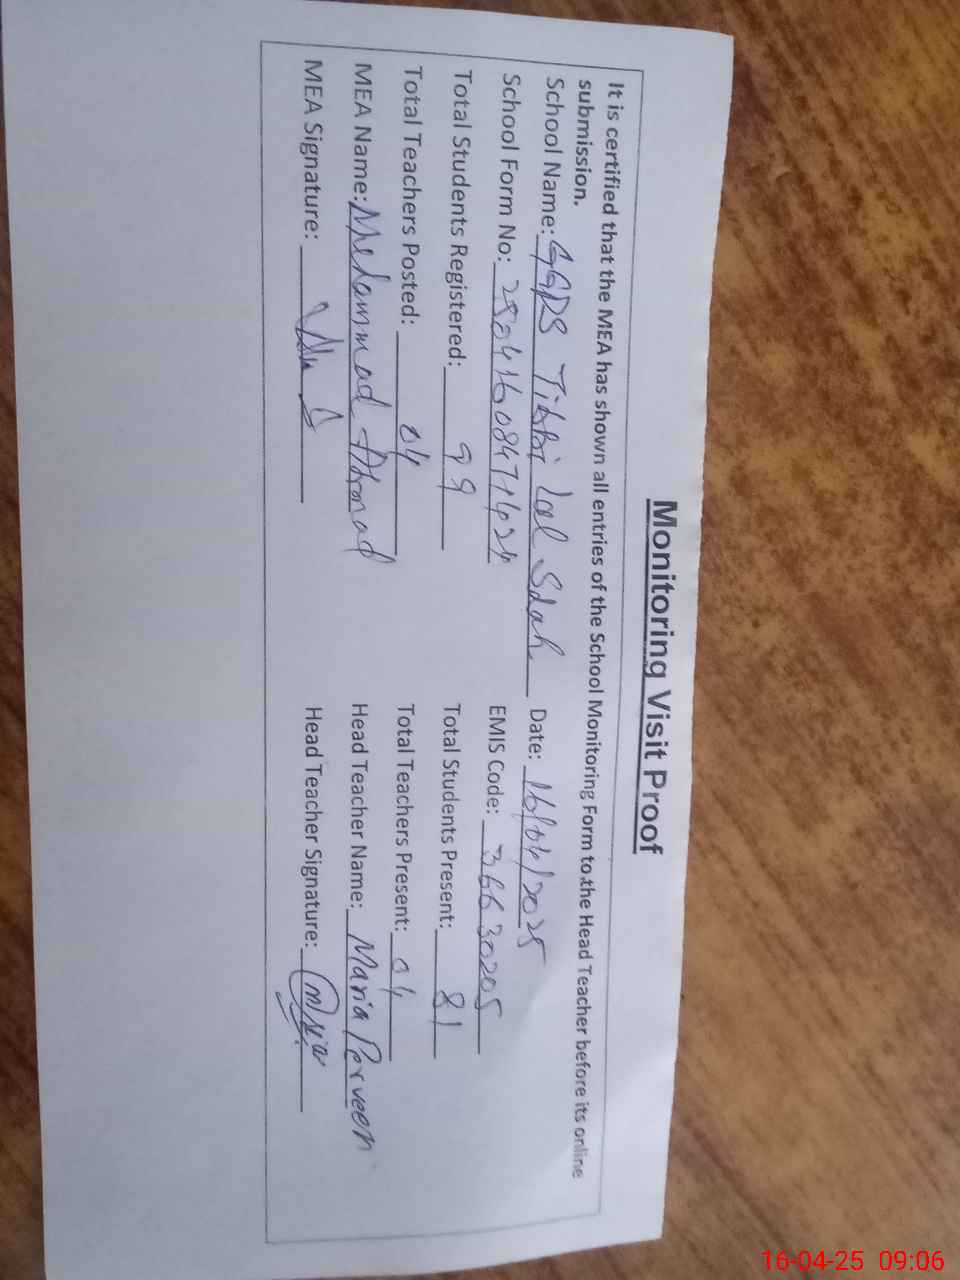 Monitoring Visit Proof
It is certified that the MEA has shown all entries of the School Monitoring Form to the Head Teacher before its online
submission.
School Name: GGPS Tibbi Lal Shah Date: 16/04/2025
School Form No: EMIS Code: 36630205
Total Students Registered: 99 Total Students Present: 81
Total Teachers Posted: 04 Total Teachers Present: 04
MEA Name: Muhammad Ahmad Head Teacher Name: Maria Parveen
MEA Signature: Head Teacher Signature: Maria
16-04-25 09:06